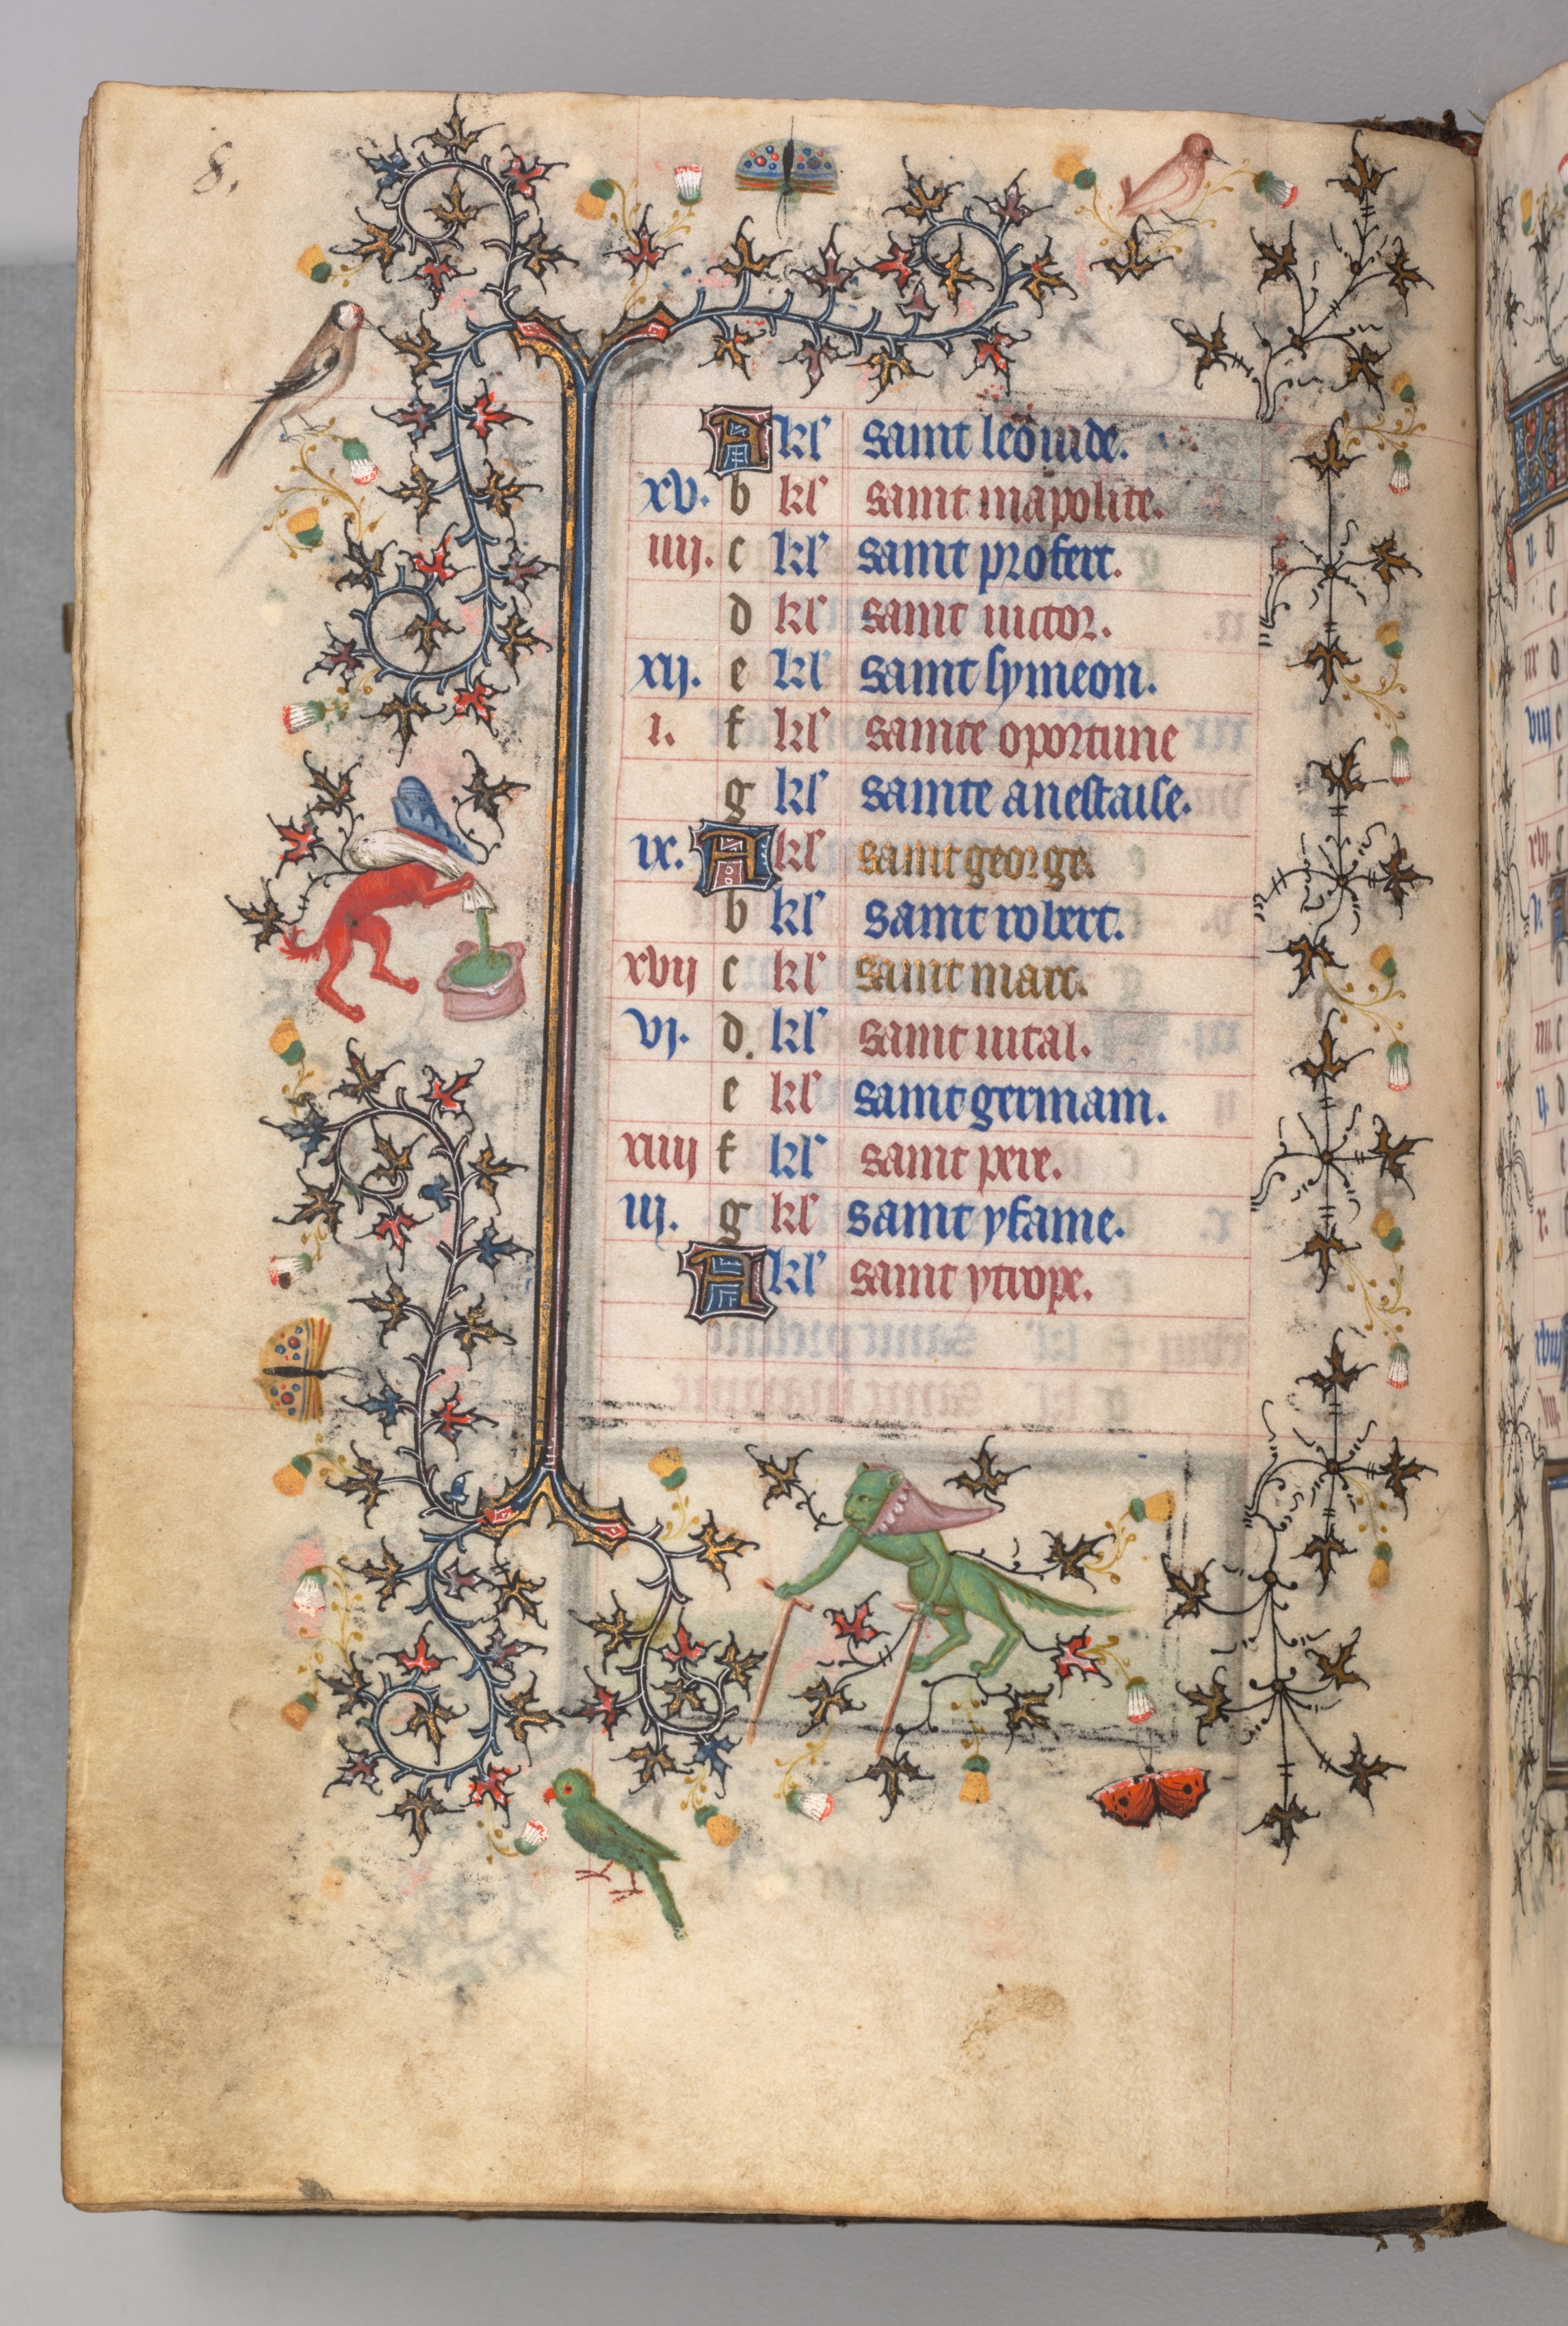 8.
A kl saint leonide.
xv. b kl saint mapolite.
iiij. c kl saint profect.
d kl saint uictor.
xij. e kl saint symeon.
i. f kl sainte oportune
g kl sainte anestaise.
ix. A kl saint george.
b kl saint robert.
xvij c kl saint marc.
vj. d. kl saint uital.
e kl saint germain.
xiiij f kl saint pere.
iij. g kl saint yfame.
A kl saint ytrope.